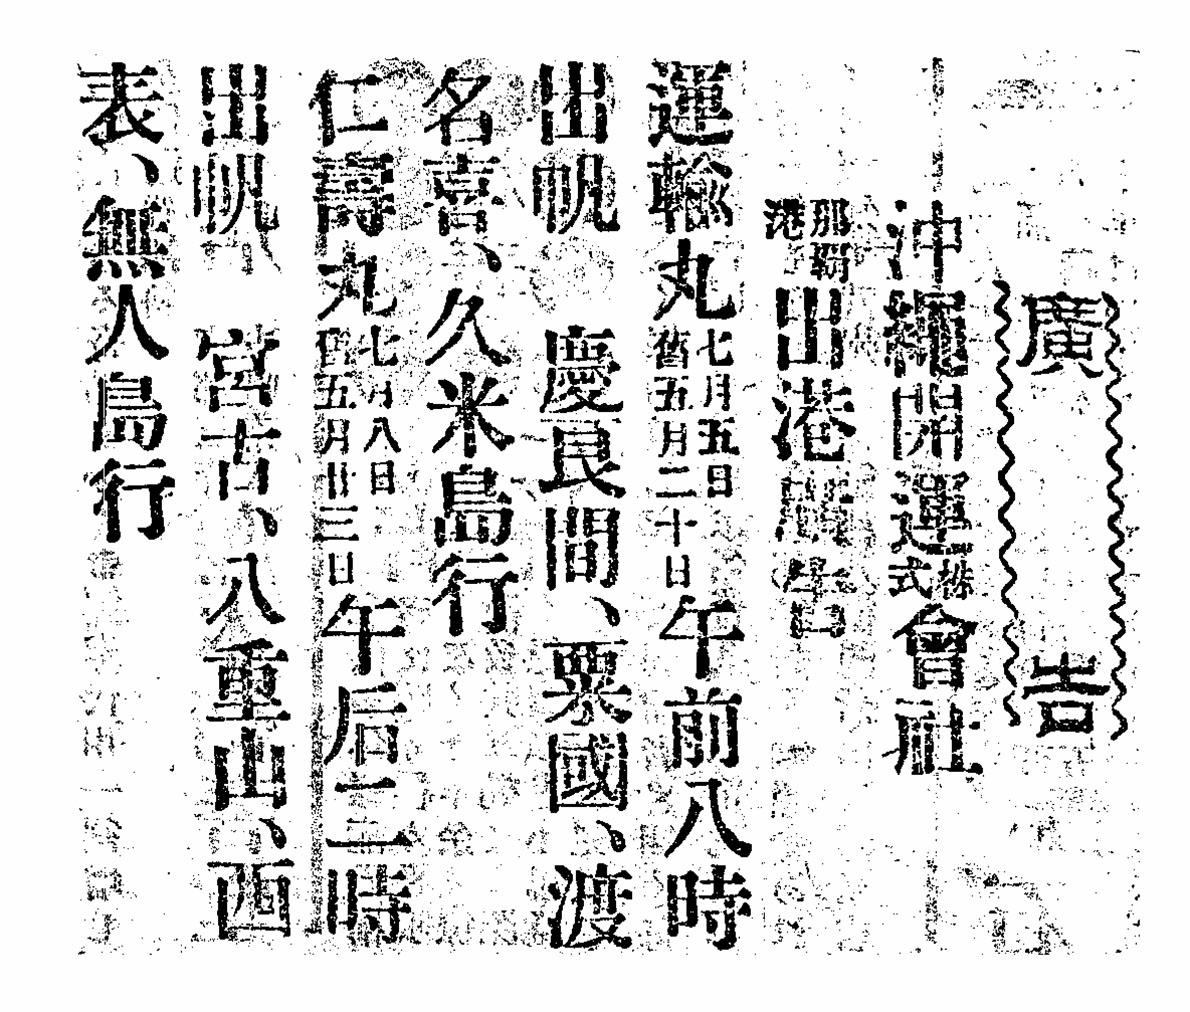 廣告
沖繩開運株式會社
那覇港出港廣告
運輸丸七月五日舊五月二十日午前八時
出帆 慶良間、粟國、渡
名喜、久米島行
仁壽丸七月八日舊五月廿三日午后二時
出帆 宮古、八重山、西
表、無人島行